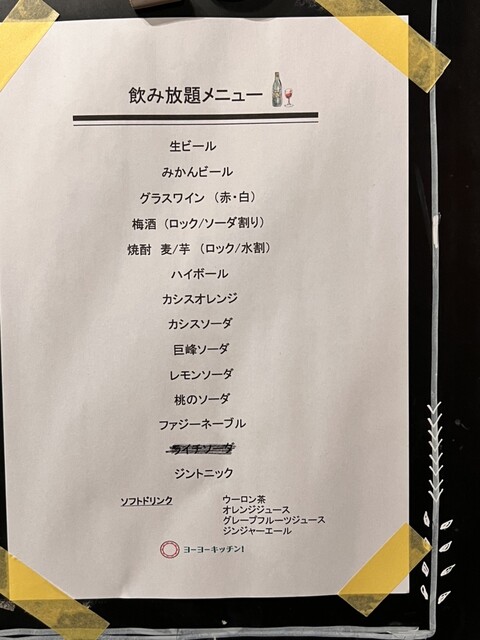 飲み放題メニュー
生ビール
みかんビール
グラスワイン（赤・白）
梅酒（ロック/ソーダ割り）
焼酎　麦/芋　（ロック/水割）
ハイボール
カシスオレンジ
カシスソーダ
巨峰ソーダ
レモンソーダ
桃のソーダ
ファジーネーブル
ライチソーダ
ジントニック
ソフトドリンク　ウーロン茶
オレンジジュース
グレープフルーツジュース
ジンジャーエール
ヨーヨーキッチン!